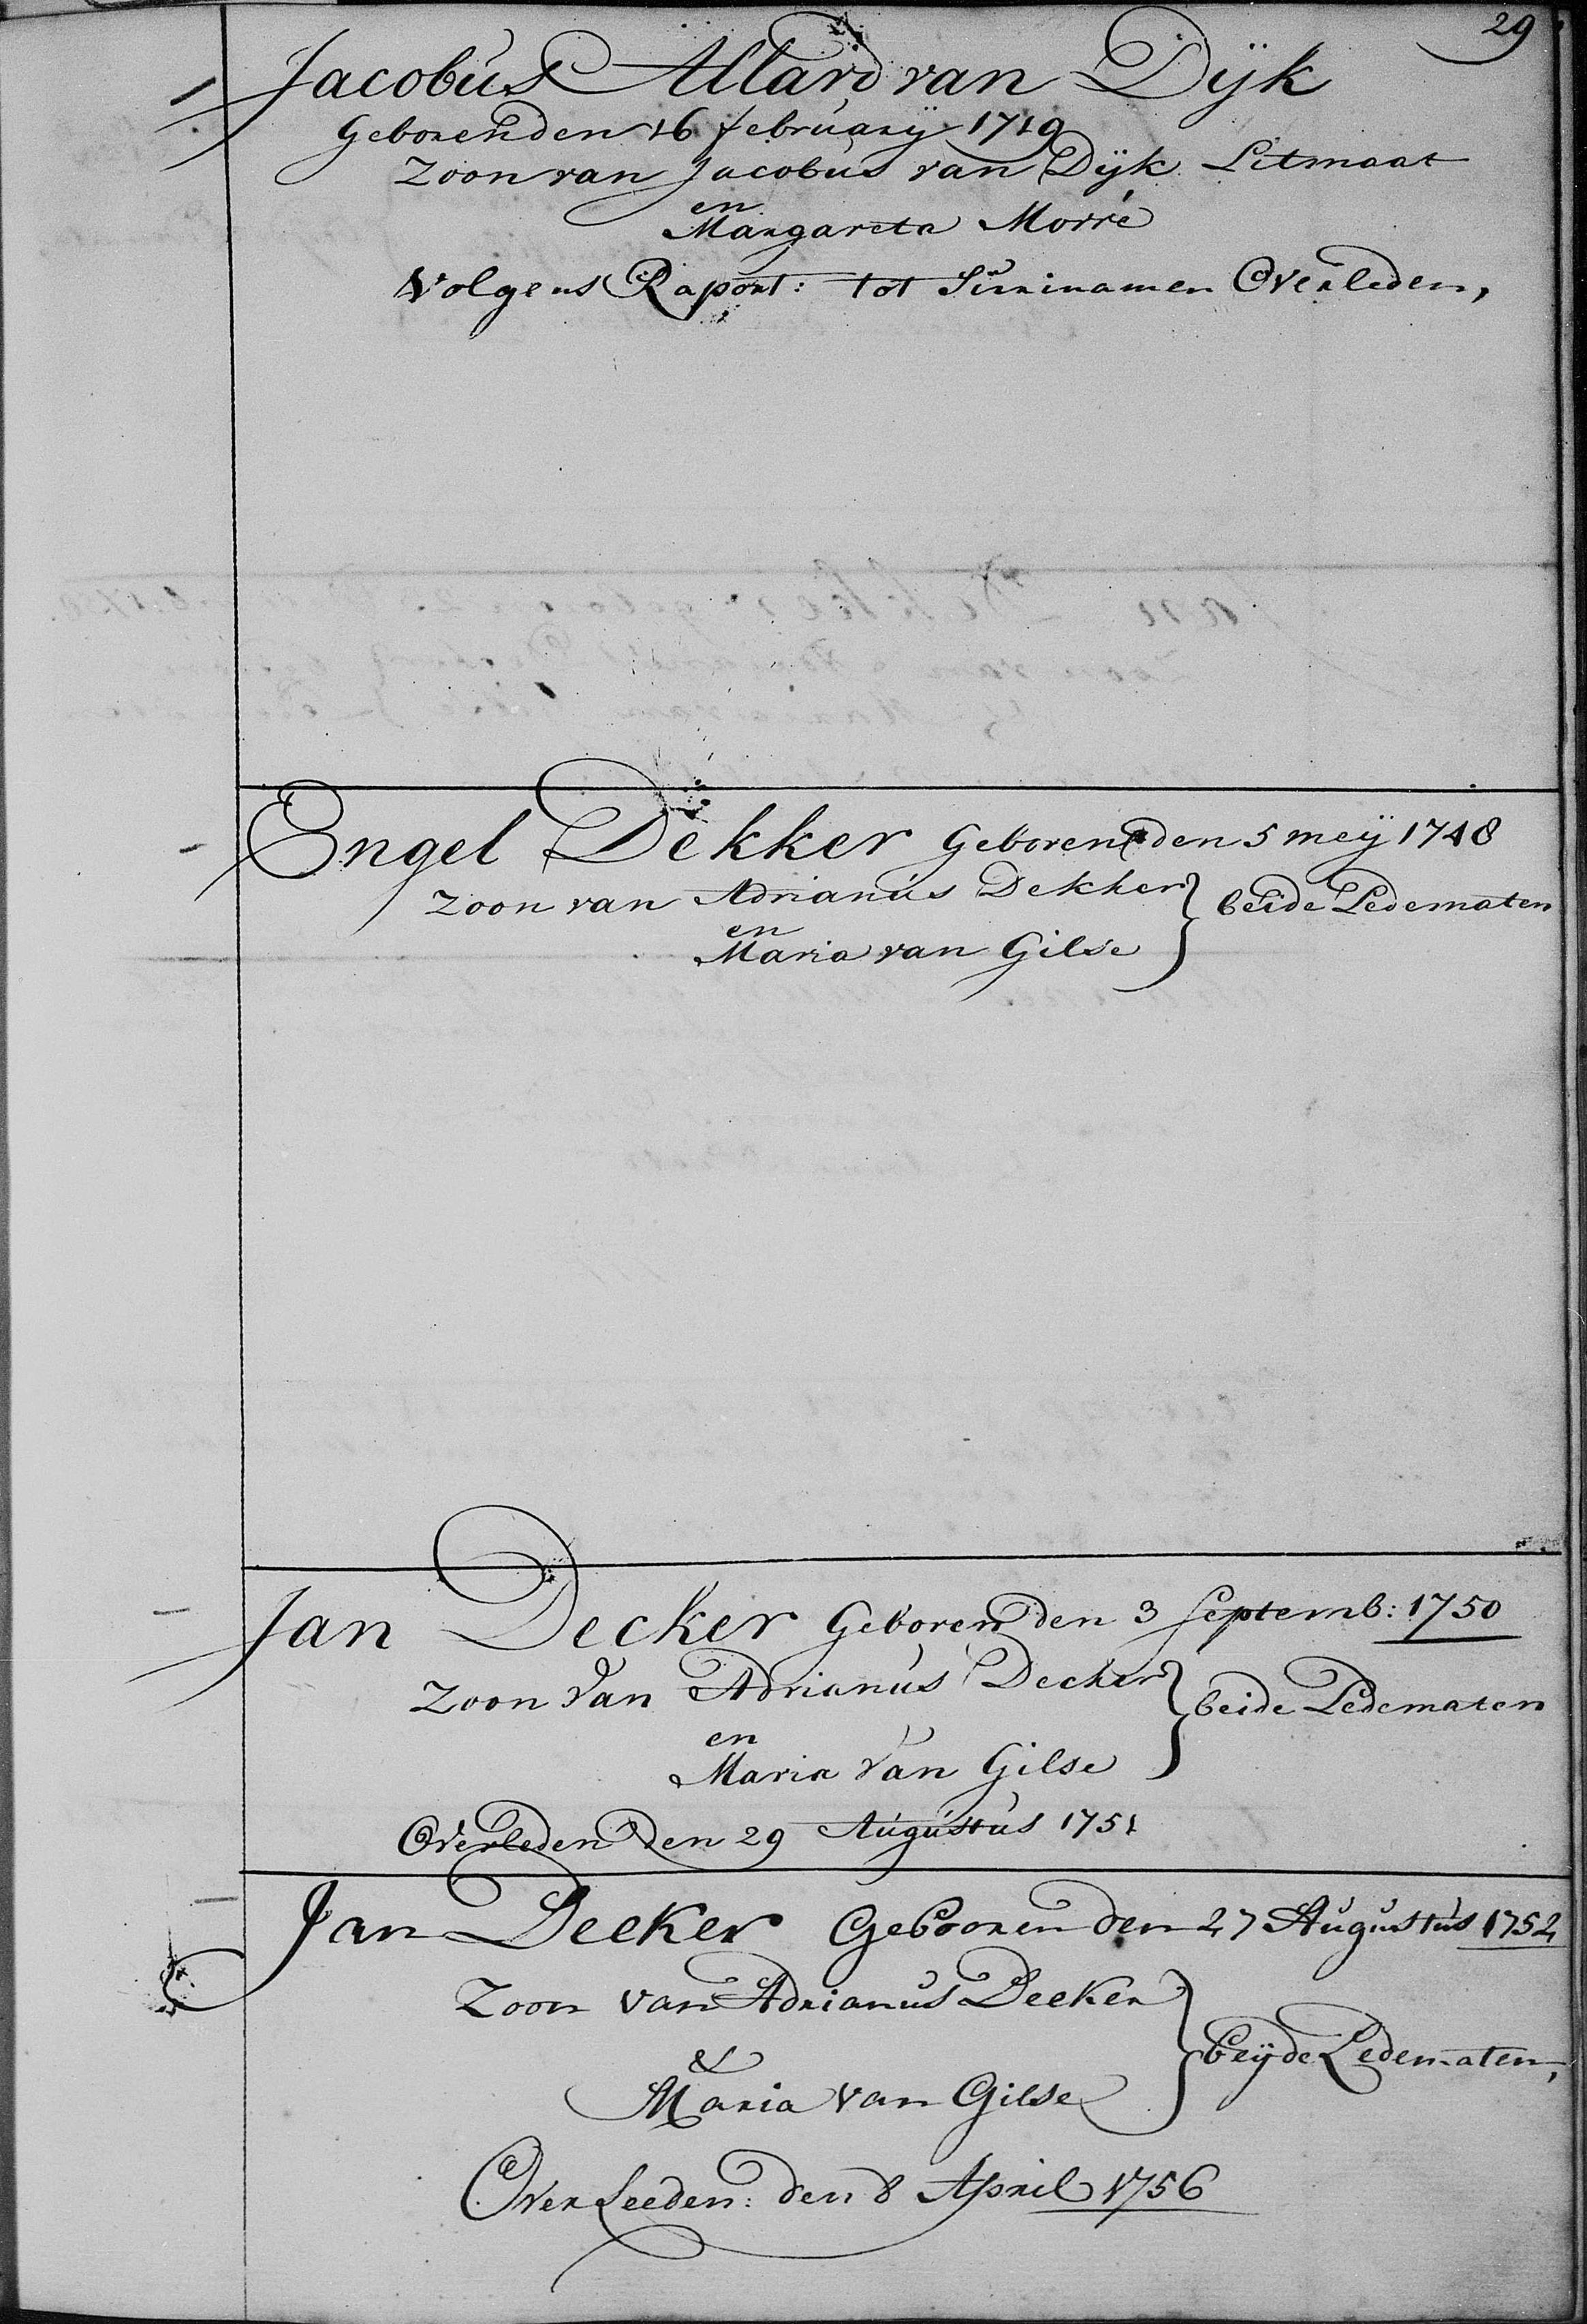 29
Jacobus Allard van Dÿk
Geboren den 16 februarÿ 1719
Zoon van Jacobus van Dÿk Litmaat
en
Margareta Morré
Volgens Raport: tot Surinamen Overleden,
Engel Dekker Geboren den 5 meÿ 1748
Zoon van Adrianus Dekker } beide Ledematen
en
Maria van Gilse
Jan Decker Geboren den 3 Septemb: 1750
Zoon van Adrianus Decker } beide Ledematen
en
Maria van Gilse
Overleden den 29 Augustus 1751
Jan Decker Gebooren den 27 Augustus 1752
Zoon van Adrianus Decker
& } beÿde Ledematen,
Maria van Gilse
Overleeden: den 8 April 1756